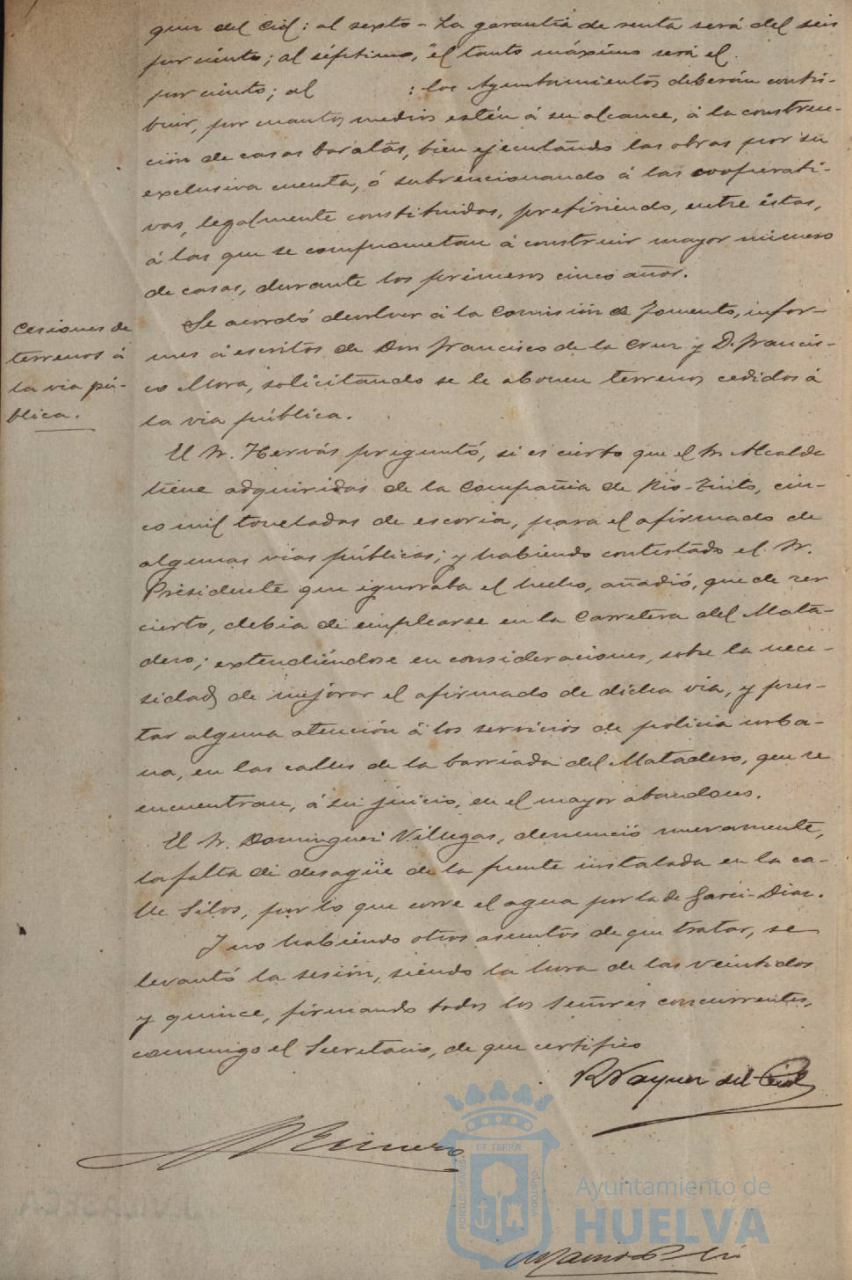 quez del Cid: al sexto - La garantía de renta será del seis
por ciento; al séptimo, el tanto máximo será el
por ciento; al : los Ayuntamientos deberán contri-
buir, por cuantos medios estén á su alcance, á la construc-
ción de casas baratas, bien ejecutando las obras por su
exclusiva cuenta, ó subvencionando á las cooperati-
vas, legalmente constituidas, prefiriendo, entre éstas,
á las que se comprometan á construir mayor número
de casas, durante los primeros cinco años.
Cesiones de
terrenos á
la via pú-
blica.
Se acordó devolver á la Comisión de Fomento, infor-
mes á escritos de Don Francisco de la Cruz y D. Francis-
co Mora, solicitando se le abonen terrenos cedidos á
la via pública.
El Sr. Hervás preguntó, si es cierto que el Sr. Alcalde
tiene adquiridas de la Compañia de Rio-Tinto, cin-
co mil toneladas de escoria, para el afirmado de
algunas vias públicas; y habiendo contestado el Sr.
Presidente que ignoraba el hecho, añadió, que de ser
cierto, debia de emplearse en la Carretera del Mata-
dero; extendiéndose en consideraciones, sobre la nece-
sidad de mejorar el afirmado de dicha via, y pres-
tar alguna atención á los servicios de policia urba-
na, en las calles de la barriada del Matadero, que se
encuentran, á su juicio, en el mayor abandono.
El Sr. Dominguez Villegas, denunció nuevamente,
la falta de desagüe de la fuente instalada en la ca-
lle Silos, por lo que corre el agua por la de Garci-Diaz.
Y no habiendo otros asuntos de que tratar, se
levantó la sesión, siendo la hora de las veintidos
y quince, firmando todos los Señores concurrentes,
conmigo el Secretario, de que certifico
Vazquez del Cid
Ayuntamiento de
HUELVA